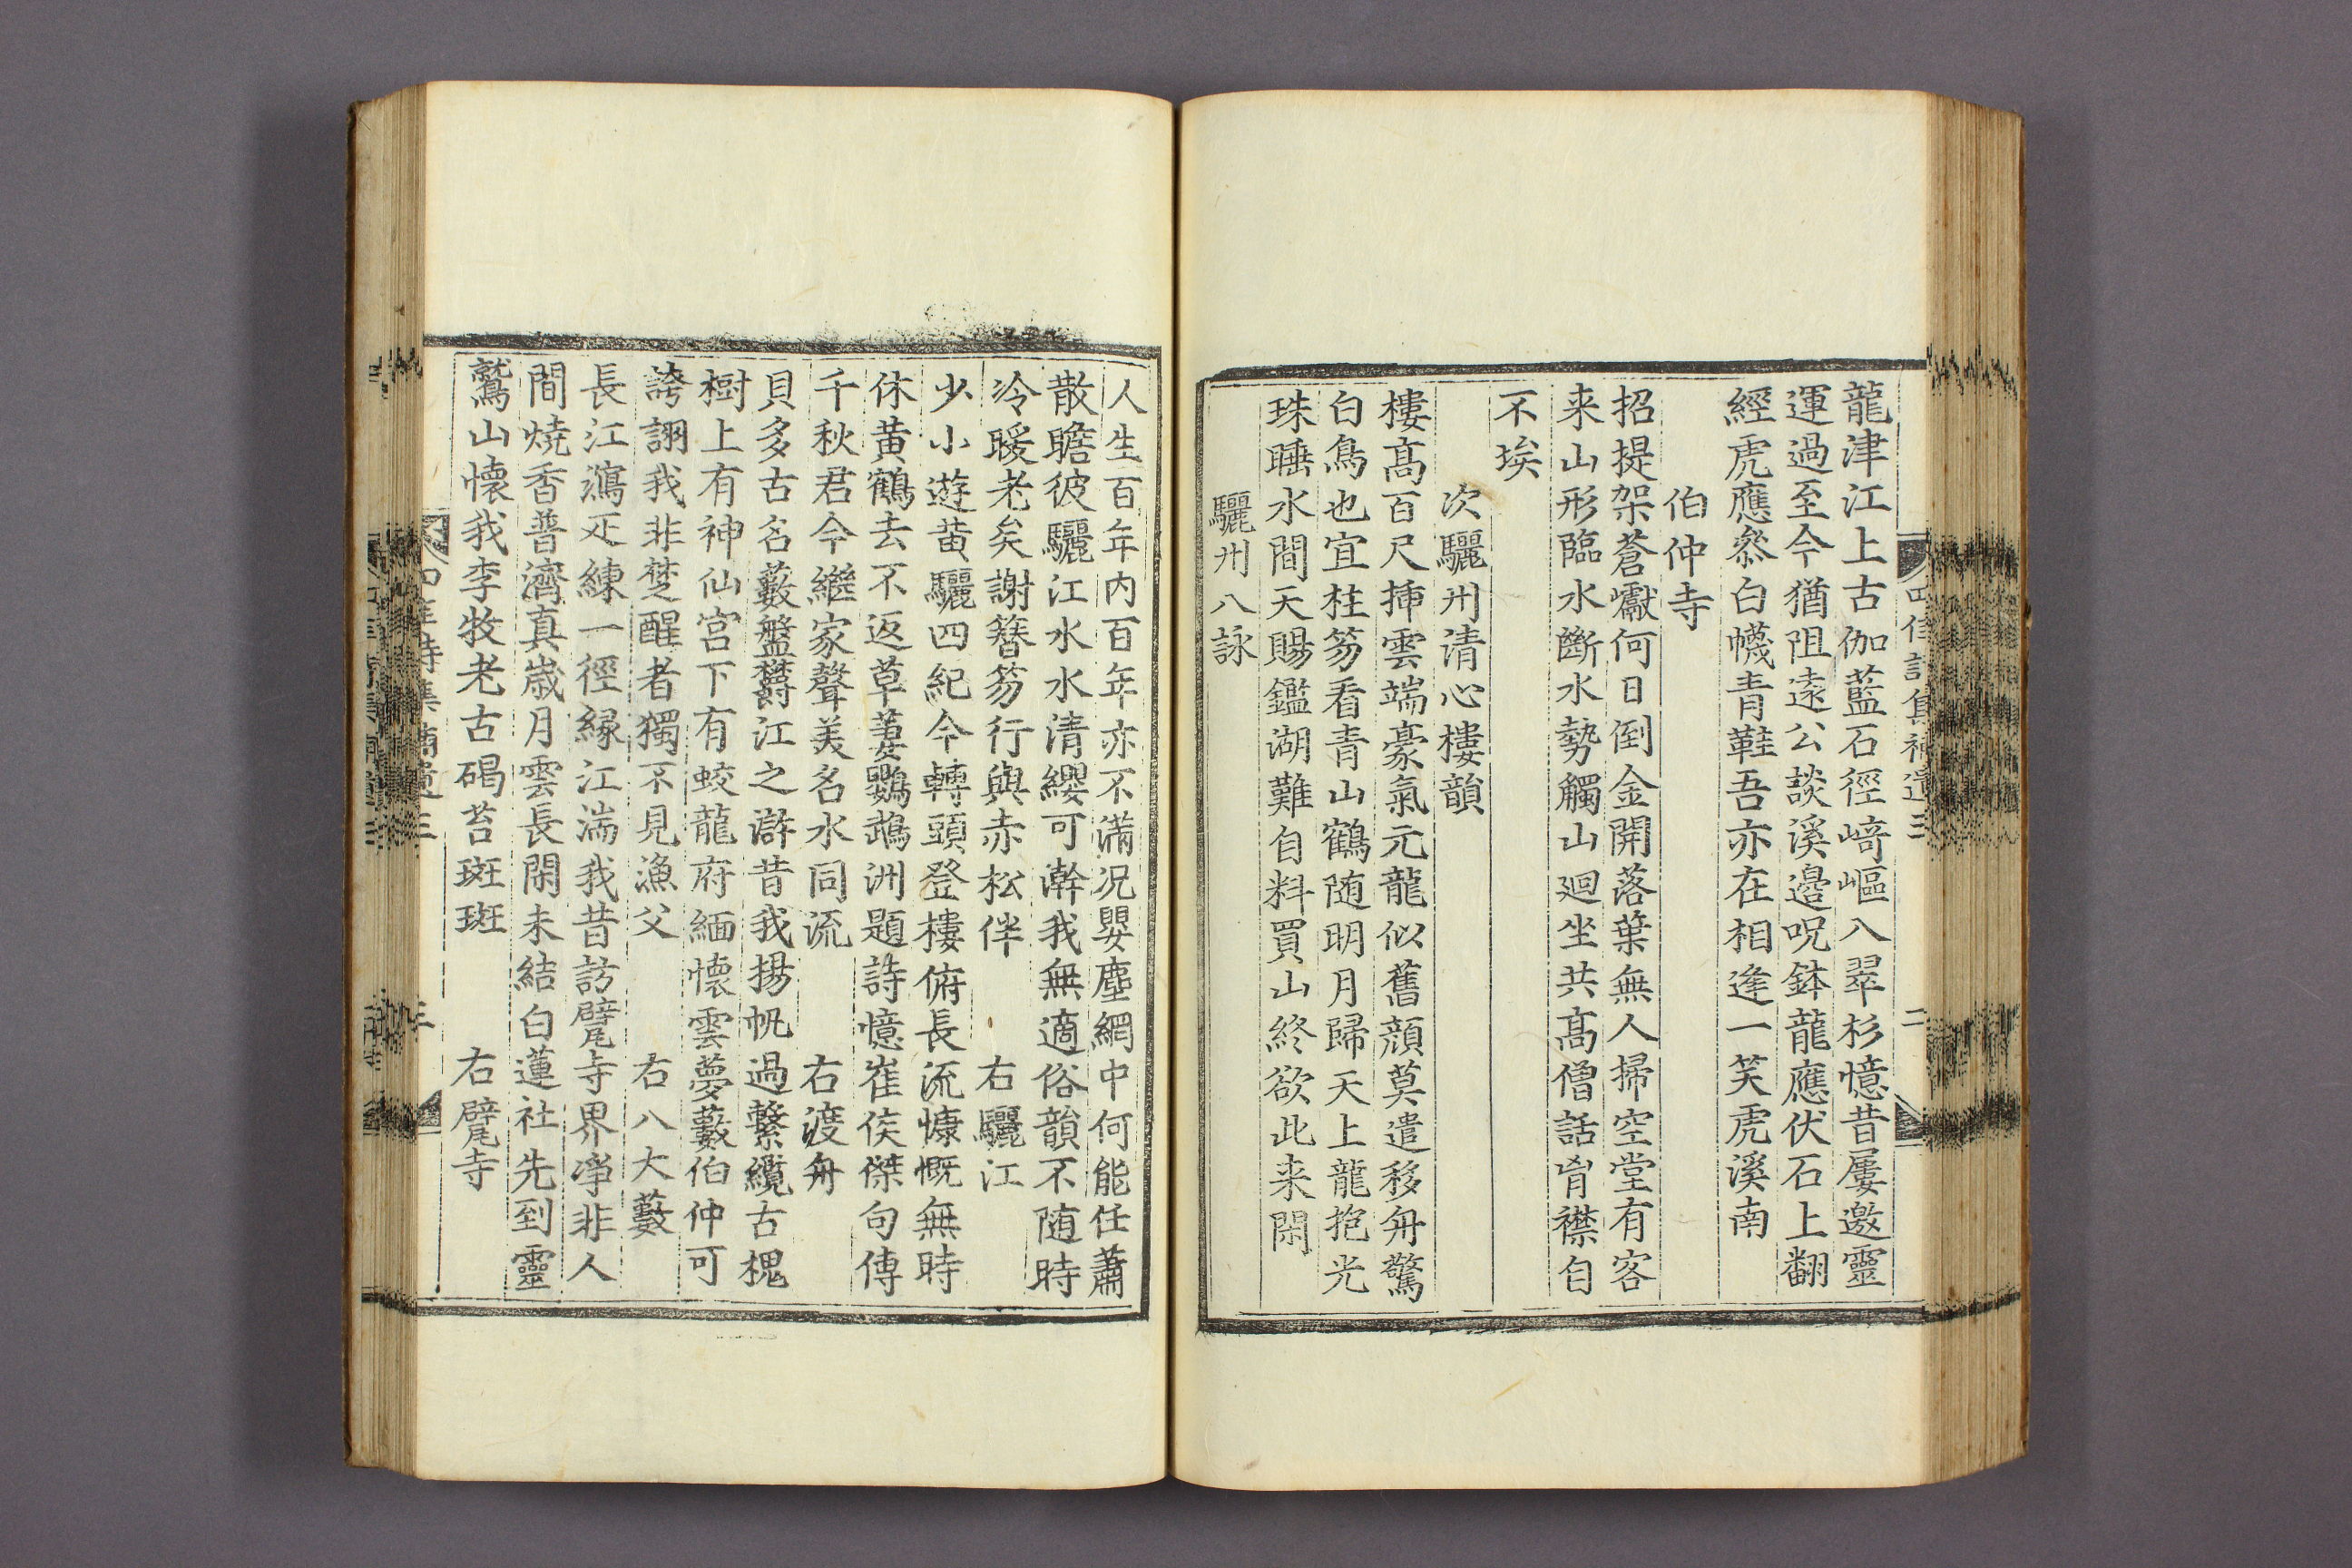 龍津江上古伽藍石徑﨑嶇八翠杉憶昔屢邀靈
運過至今猶阻遠公談溪邉呪鉢龍應伏石上翻
經虎應叅白幭青鞋吾亦在相逢一笑虎溪南
伯仲寺
招提架蒼巘何日倒金開落葉無人掃空堂有客
来山形臨水斷水勢觸山廻坐共髙僧話胷襟自
不埃
次驪州清心樓韻
樓髙百尺揷雲端豪氣元龍似舊顔莫遣移舟驚
白鳥也宜柱笏看青山鶴随明月歸天上龍抱光
珠睡水間天賜鑑湖難自料買山終欲此来閑
驪州八詠
人生百年内百年亦不滿况嬰塵網中何能任蕭
散瞻彼驪江水水清纓可澣我無適俗韻不随時
冷暖老矣謝簪笏行與赤松伴 右驪江
少小遊黄驪四紀今轉頭登樓俯長流慷慨無時
休黄鶴去不返草萋鸚鵡洲題詩憶崔侯傑句傳
千秋君今繼家聲美名水同流 右渡舟
貝多古名藪盤欝江之滸昔我揚帆過繫纜古槐
樹上有神仙宫下有蛟龍府緬懷雲夢藪伯仲可
誇詡我非楚醒者獨不見漁父 右八大藪
長江瀉疋練一徑緣江湍我昔訪甓寺界凈非人
間燒香普濟真歲月雲長閑未結白蓮社先到靈
鷲山懷我李牧老古碣苔斑斑 右甓寺